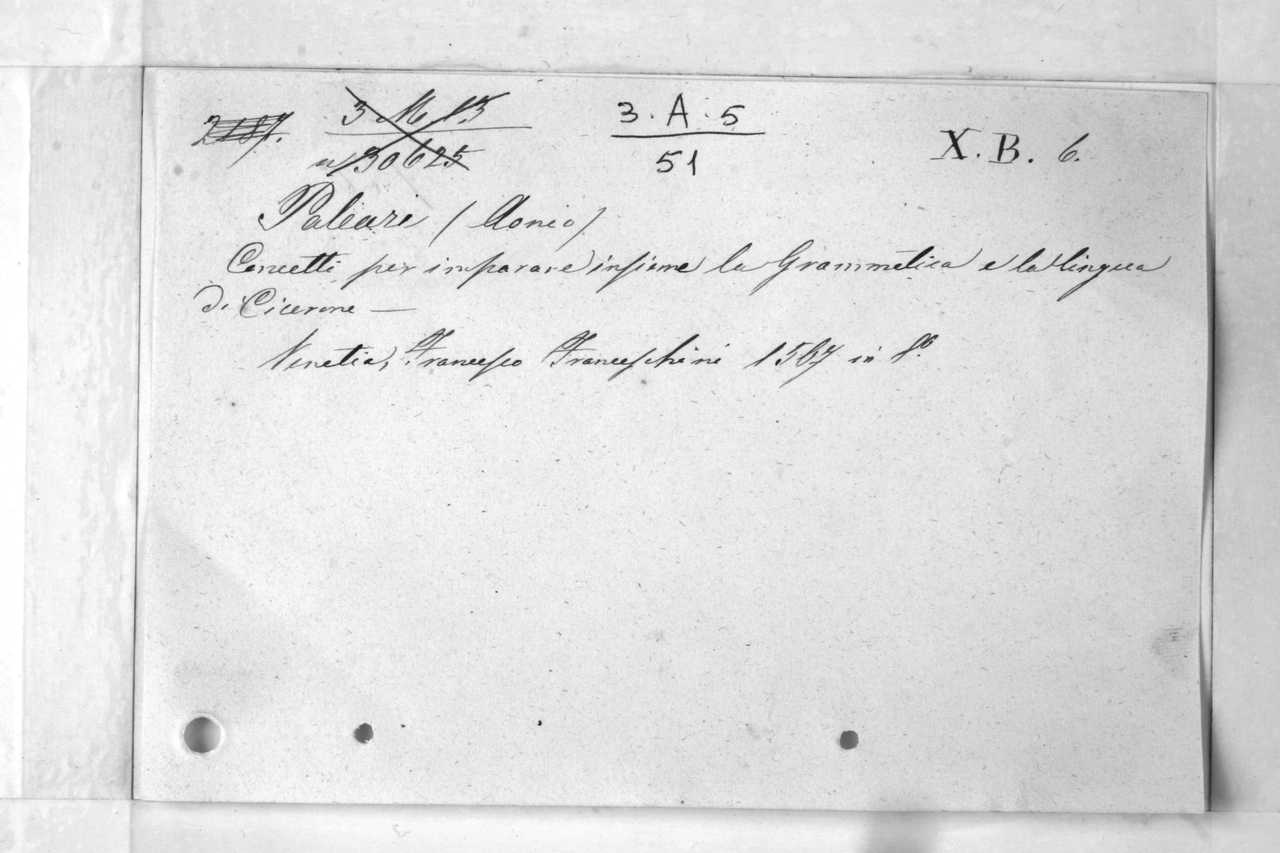 2187. 3 M 13 3.A.5 X.B. 6.
n/30625 51
Paleari (Aonio)
Concetti per imparare insieme la Grammatica e la lingua
di Cicerone —
Venetia, Francesco Franceschini 1567 in 8º